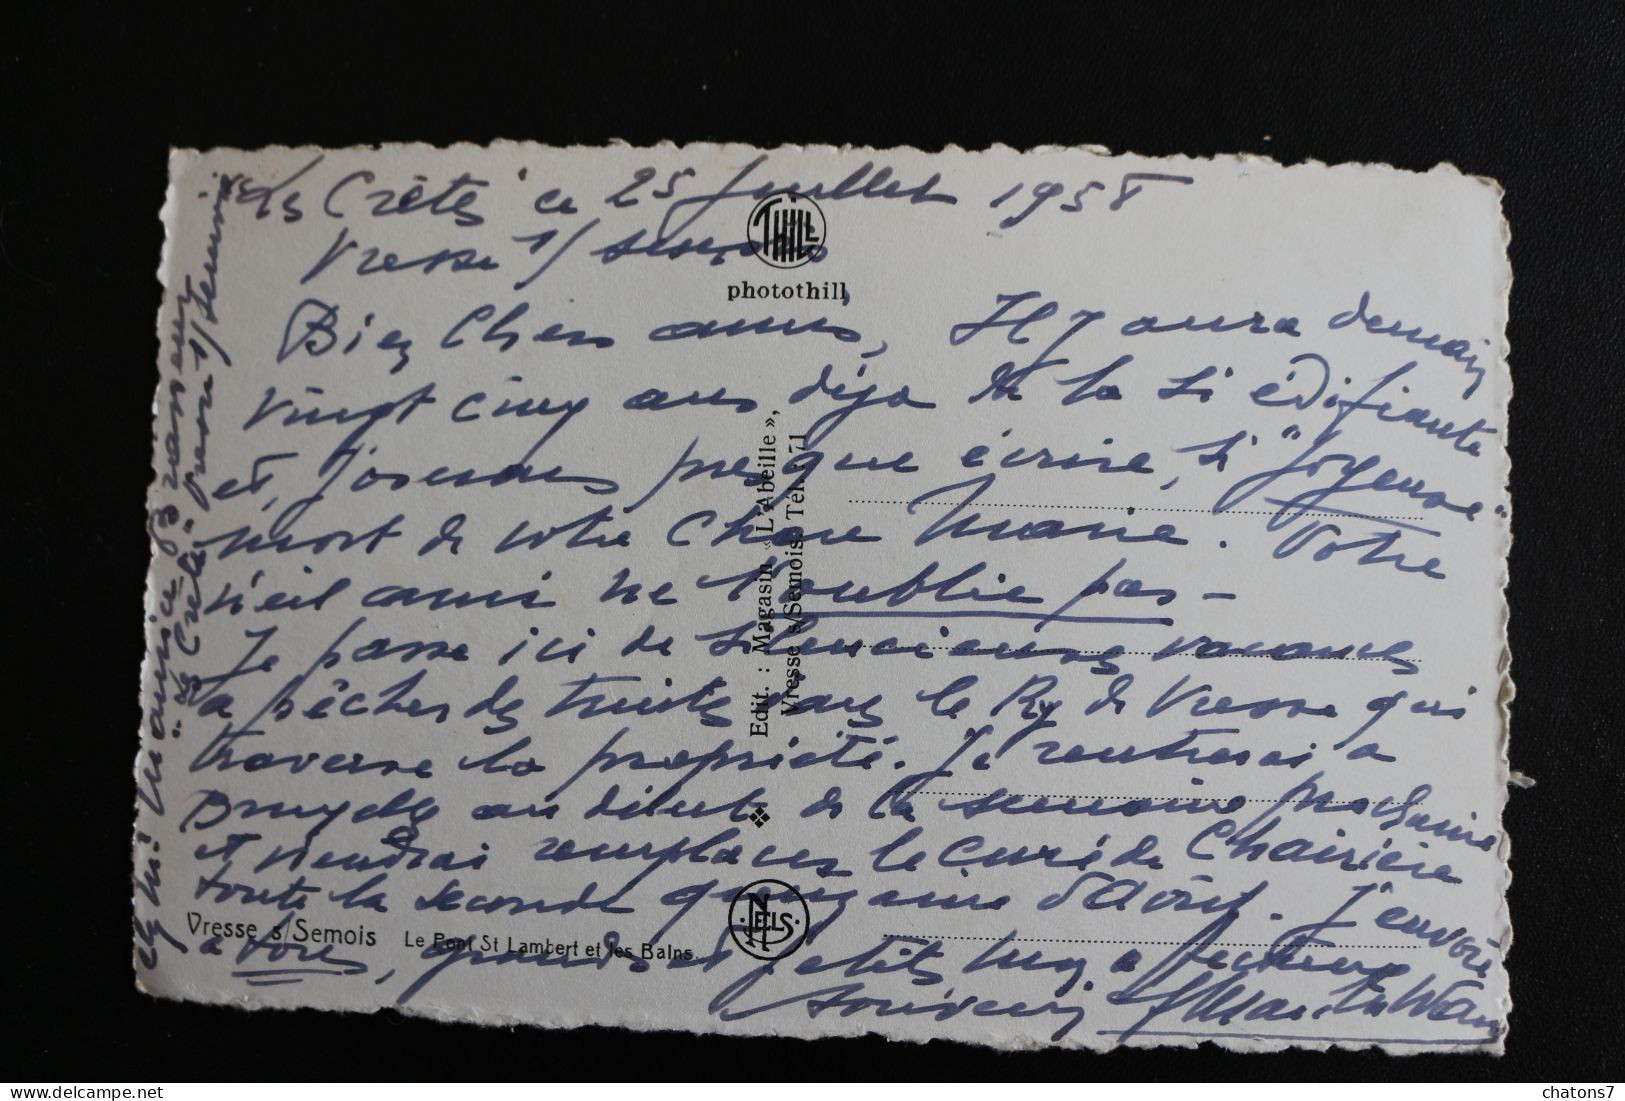 "Les Crêtes" ce 25 Juillet 1958
Vresse s/ semois
Bien Chers amis, Il y aura demain
vingt cinq ans déjà de la si édifiante
et, j'oserais presque écrire, si "joyeuse"
mort de votre Chère Marie. Votre
vieil ami ne l'oublie pas -
Je passe ici de silencieuses vacances
à pêcher des truites dans le Ry de Vresse qui
traverse la propriété. Je rentrerai à
Bruxelles au début de la semaine prochaine
et viendrai remplacer le curé de Chairière
toute la seconde quinzaine d'Août. J'envoie
à tous, grands et petits mon affectueux
souvenir
chez Mr Maurice Brasseur
"Les Crêtes" Vresse s/ Semois
THILL
photothill
Edit. : Magasin « L'Abeille »,
Vresse s/Semois. Tél. 71
NELS
Vresse s/Semois Le Pont St Lambert et les Bains.